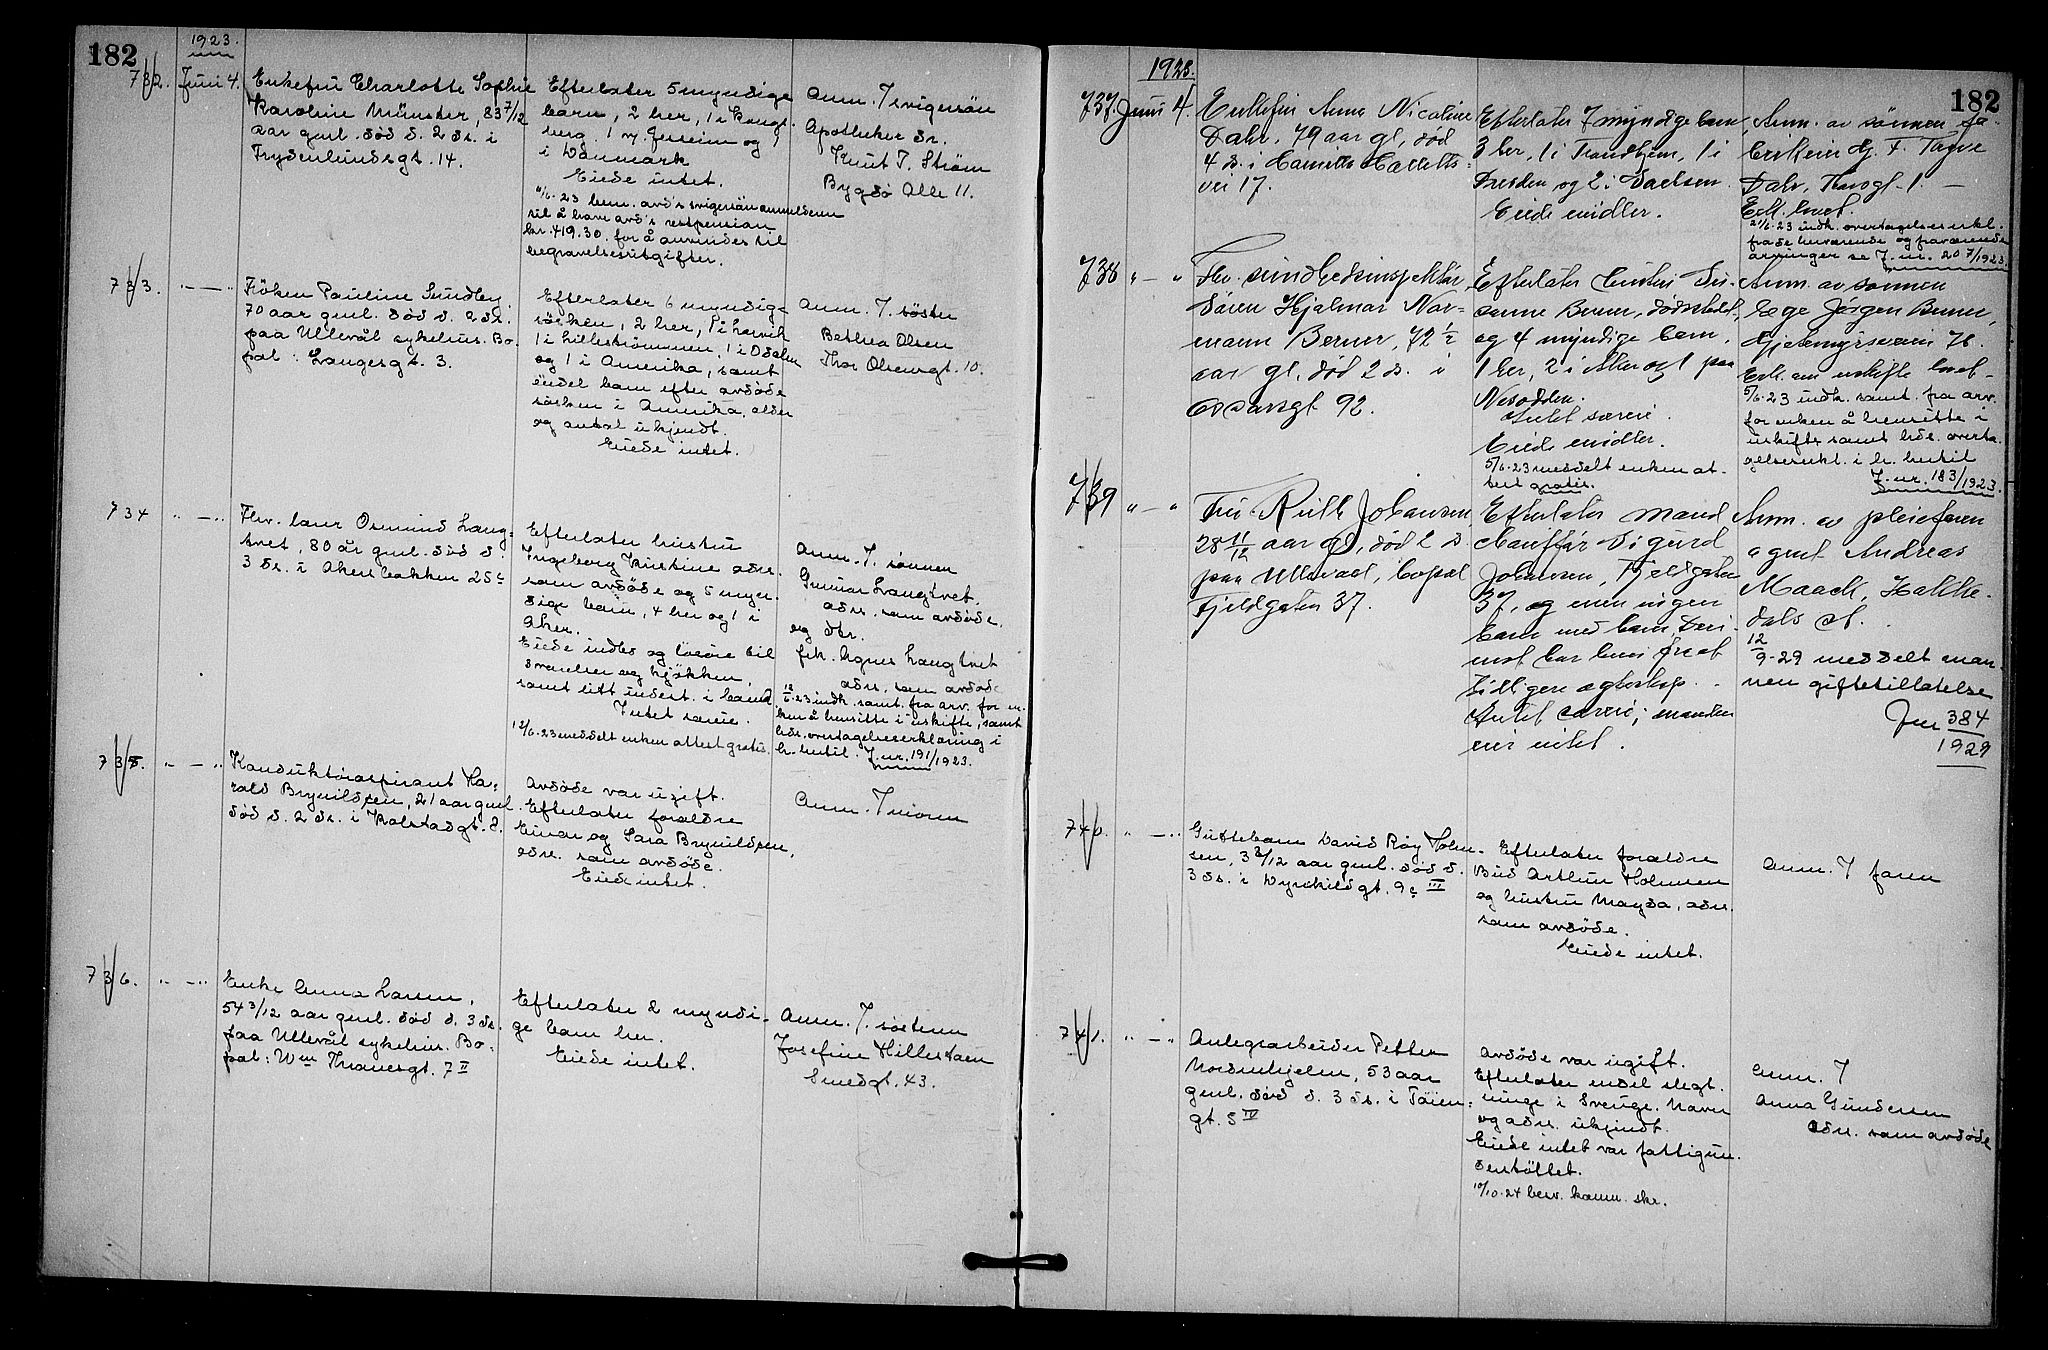 182
1923.
732. Juni 4.
Enkefru Charlotte Sophie
Karoline Münster, 83 7/12
aar gml. död d. 2 ds. i
Frydenlundsgt. 14.
Efterlater 5 myndige
barn, 2 her, 1 i Kongs-
berg, 1 og 1
i Danmark
Eiede intet.
6.23 bem. avd's svigersön anmelderen
til å have avd's restpension
kr. 419.30. for å anvendes til
begravelsesutgifter.
Anm. J svigersön
Apotheker dr.
Knut T. Ström
Bygdö Alle 11.
733. " — "
Fröken Pauline Sundby
70 aar gml. död d. 2 ds.
paa Ullevål sykehus. Bo-
pæl: Langesgt. 3.
Efterlater 6 myndige
sösken, 2 her, 1 i Larvik
1 i Lillestrømmen, 1 i Odalen
og 1 i Amerika, samt
endel barn efter avdöde
sösken i Amerika, alder
og antal ukjendt.
Eiede intet.
Anm. J. söster
Bethea Olsen
Thor Olsensgt. 10.
734 " — "
Fhv. Osmund Lang-
tvet, 80 år gml. död d
3 ds. i Akersbakken 25 c
Efterlater hustru
Ingeborg Kirstine adr.
som avdöde og 5 myn-
dige barn, 4 her og 1 i
Aker.
Eiede indbo og lösöre til
2 værelser og kjökken,
samt litt indest. i bank
Intet særeie.
12/6.23 meddelt enken attest gratis.
Anm. J. sönnen
Gunnar Langtvet,
adr. som avdöde.
og dtr.
frk. Agnes Langtvet
adr. som avdöde
12/6.23 indk. samt. fra arv. for en-
ken å hensitte i uskifte, samt
hds. overtagelseserklæring i
h. hutil. J.nr. 191/1923.
735. " — "
Konduktöraspirant Ha-
rald Brynildsen, 21 aar gml.
död d. 2 ds. i Kalstadgt. 8.
Avdöde var ugift.
Efterlater foreldre
Einar og Sara Brynildsen,
adr. som avdöde.
Eiede intet.
Anm. J moren
736. " — "
Enke Anna Larsen,
54 3/12 aar gml. död d. 3 ds.
paa Ullevål sykehus. Bo-
pæl: Wm Thranesgt. 7 II
Efterlater 2 myndi-
ge barn her.
Eiede intet.
Anm. J. søsteren
Josefine Hillestaen
Smedgt. 43.
182
1923.
737. Juni 4.
Enkefru Anna Nicoline
Dahr, 79 aar gl, död
4 ds. i Camilla Colletts
vei 17.
Efterlater 7 myndige barn
3 her, 1 i Trondhjem, 1 i
Dresden og 2 i Sachsen.
Eiede midler.
Anm. av sønnen fa-
brikeier Hj. F. Tagve
Dahr, 1. —
Erk. lovet.
21/6.23 indk. overtagelseserkl.
fra de herværende og fraværende
arvinger se J. nr. 207/1923.
738 " — "
Fhv. sundhedsinspektör
Sören Hjalmar Nor-
mann Berner, 72 1/2
aar gl, död 2 ds. i
Oscarsgt 92.
Efterlater hustru Su-
sanne Berner, dødsstedet,
og 4 myndige barn,
1 her, 2 i Aker og 1 paa
Nesodden.
Intet særeie.
Eiede midler.
5/6.23 meddelt enken at-
test gratis.
Anm. av sønnen
Læge Jörgen Berner,
Gjetemyrsveien 76.
Erk. om uskifte lovet —
5/6.23 indk. samt. fra arv.
for enken å hensitte i
uskifte samt hds. overta-
gelseserkl. i h. hutil
J. nr. 183/1923.
739 " — "
Fru Ruth Johansen,
28 11/12 aar gl, död 2 ds.
paa Ullevaal, bopæl
Fjeldgaten 37.
Efterlater mand
chaufför Sigurd
Johansen, Fjeldgaten
37, og men ingen
barn med ham, Deri-
mot har hun et fra et
tidligere ægteskap.
Intet særeie; manden
eier intet.
Anm. av pleiefaren
agent Andreas
Maack, Hakke-
dals st.
12/9-29 meddelt man-
nen giftetillatelse
Jnr 384
1929
740. " — "
Guttebarn David Roy Holm-
sen, 3 2/12 aar gml. död d.
3 ds. i Dyrekildsgt. 9 c III
Efterlater foreldre
Bud Arthur Holmsen
og hustru Magda, adr.
som avdöde.
Eiede intet.
Anm. J faren
741. " — "
Anlegsarbeider Petter
Nordenhjelm, 53 aar
gml. död d. 3 ds. i Töien-
gt. 5 IV
Avdöde var ugift.
Efterlater endel slegt-
ninge i Sverige. Navn
og adr. ukjendt.
Eiede intet var fattigun-
derstöttet.
10/10.24 besv. komm. skr.
Anm. J
Anna Gundersen
adr. som avdöde